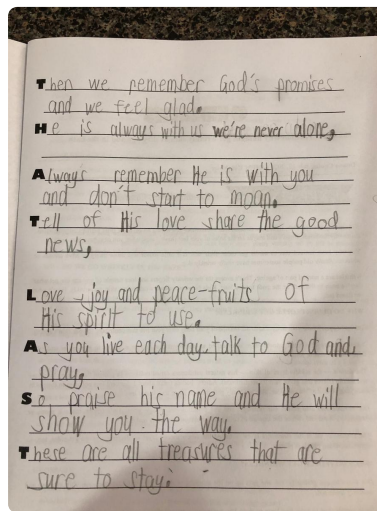 Then we remember God's promises
and we feel glad.
He is always with us we're never alone,
Always remember He is with you
and don't start to moan.
Tell of His love share the good
news,
Love, joy and peace-fruits of
His spirit to use.
As you live each day, talk to God and
pray.
So praise his name and He will
show you the way.
These are all treasures that are
sure to stay.